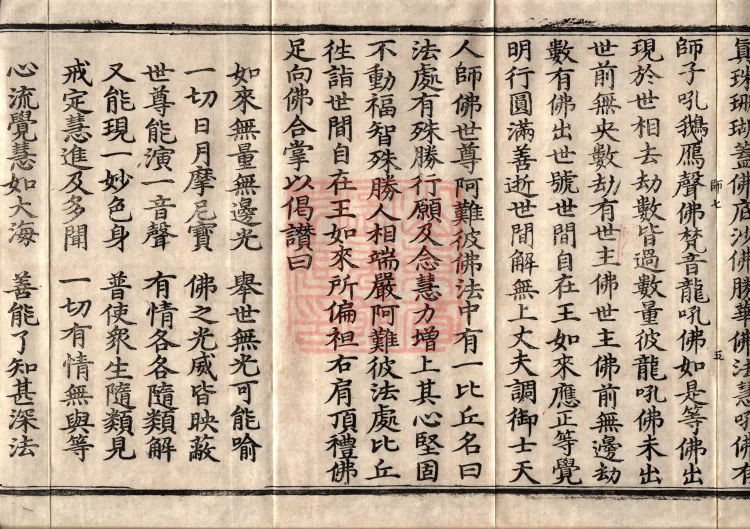 眞珠珊瑚蓋佛底沙佛勝華佛法慧吼佛有
師子吼鵝鴈聲佛梵音龍吼佛如是等佛出
師七
五
現於世相去劫數皆過數量彼龍吼佛未出
世前無央數劫有世主佛世主佛前無邊劫
數有佛出世號世間自在王如來應正等覺
明行圓滿善逝世間解無上丈夫調御士天
人師佛世尊阿難彼佛法中有一比丘名曰
法處有殊勝行願及念慧力增上其心堅固
不動福智殊勝人相端嚴阿難彼法處比丘
徃詣世間自在王如來所偏袒右肩頂禮佛
足向佛合掌以偈讚曰
如來無量無邊光　舉世無光可能喻
一切日月摩尼寶　佛之光威皆映蔽
世尊能演一音聲　有情各各隨類解
又能現一妙色身　普使衆生隨類見
戒定慧進及多聞　一切有情無與等
心流覺慧如大海　善能了知甚深法